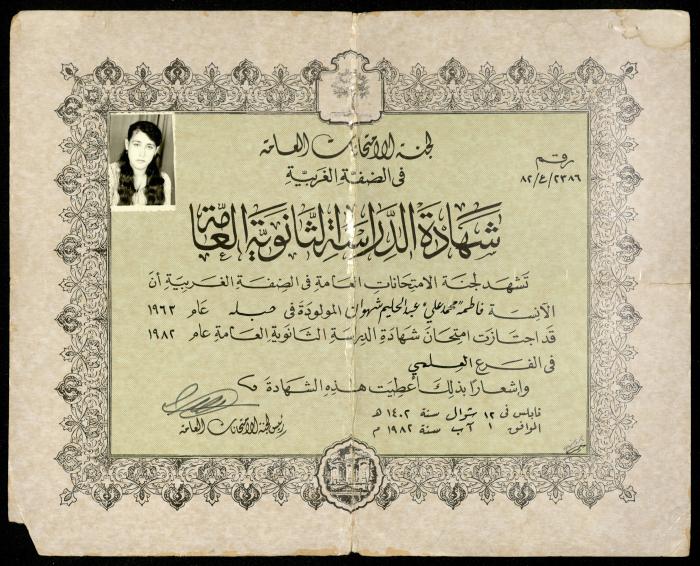 لجنة الامتحانات العامة
في الضفة الغربية
رقم
٨٢/ع/٢٣٨٦
شهادة الدراسة الثانوية العامة
تشهد لجنة الامتحانات العامة في الضفة الغربية أن
الآنسة فاطمة "محمد علي" عبد الحليم شهوان المولودة في عام ١٩٦٣
قد اجتازت امتحان شهادة الدراسة الثانوية العامة عام ١٩٨٢
في الفرع العلمي
وإشعارا بذلك أعطيت هذه الشهادة
نابلس في ١٢ شوال سنة ١٤٠٢ هـ
الموافق ١ آب سنة ١٩٨٢ م
رئيس لجنة الامتحانات العامة